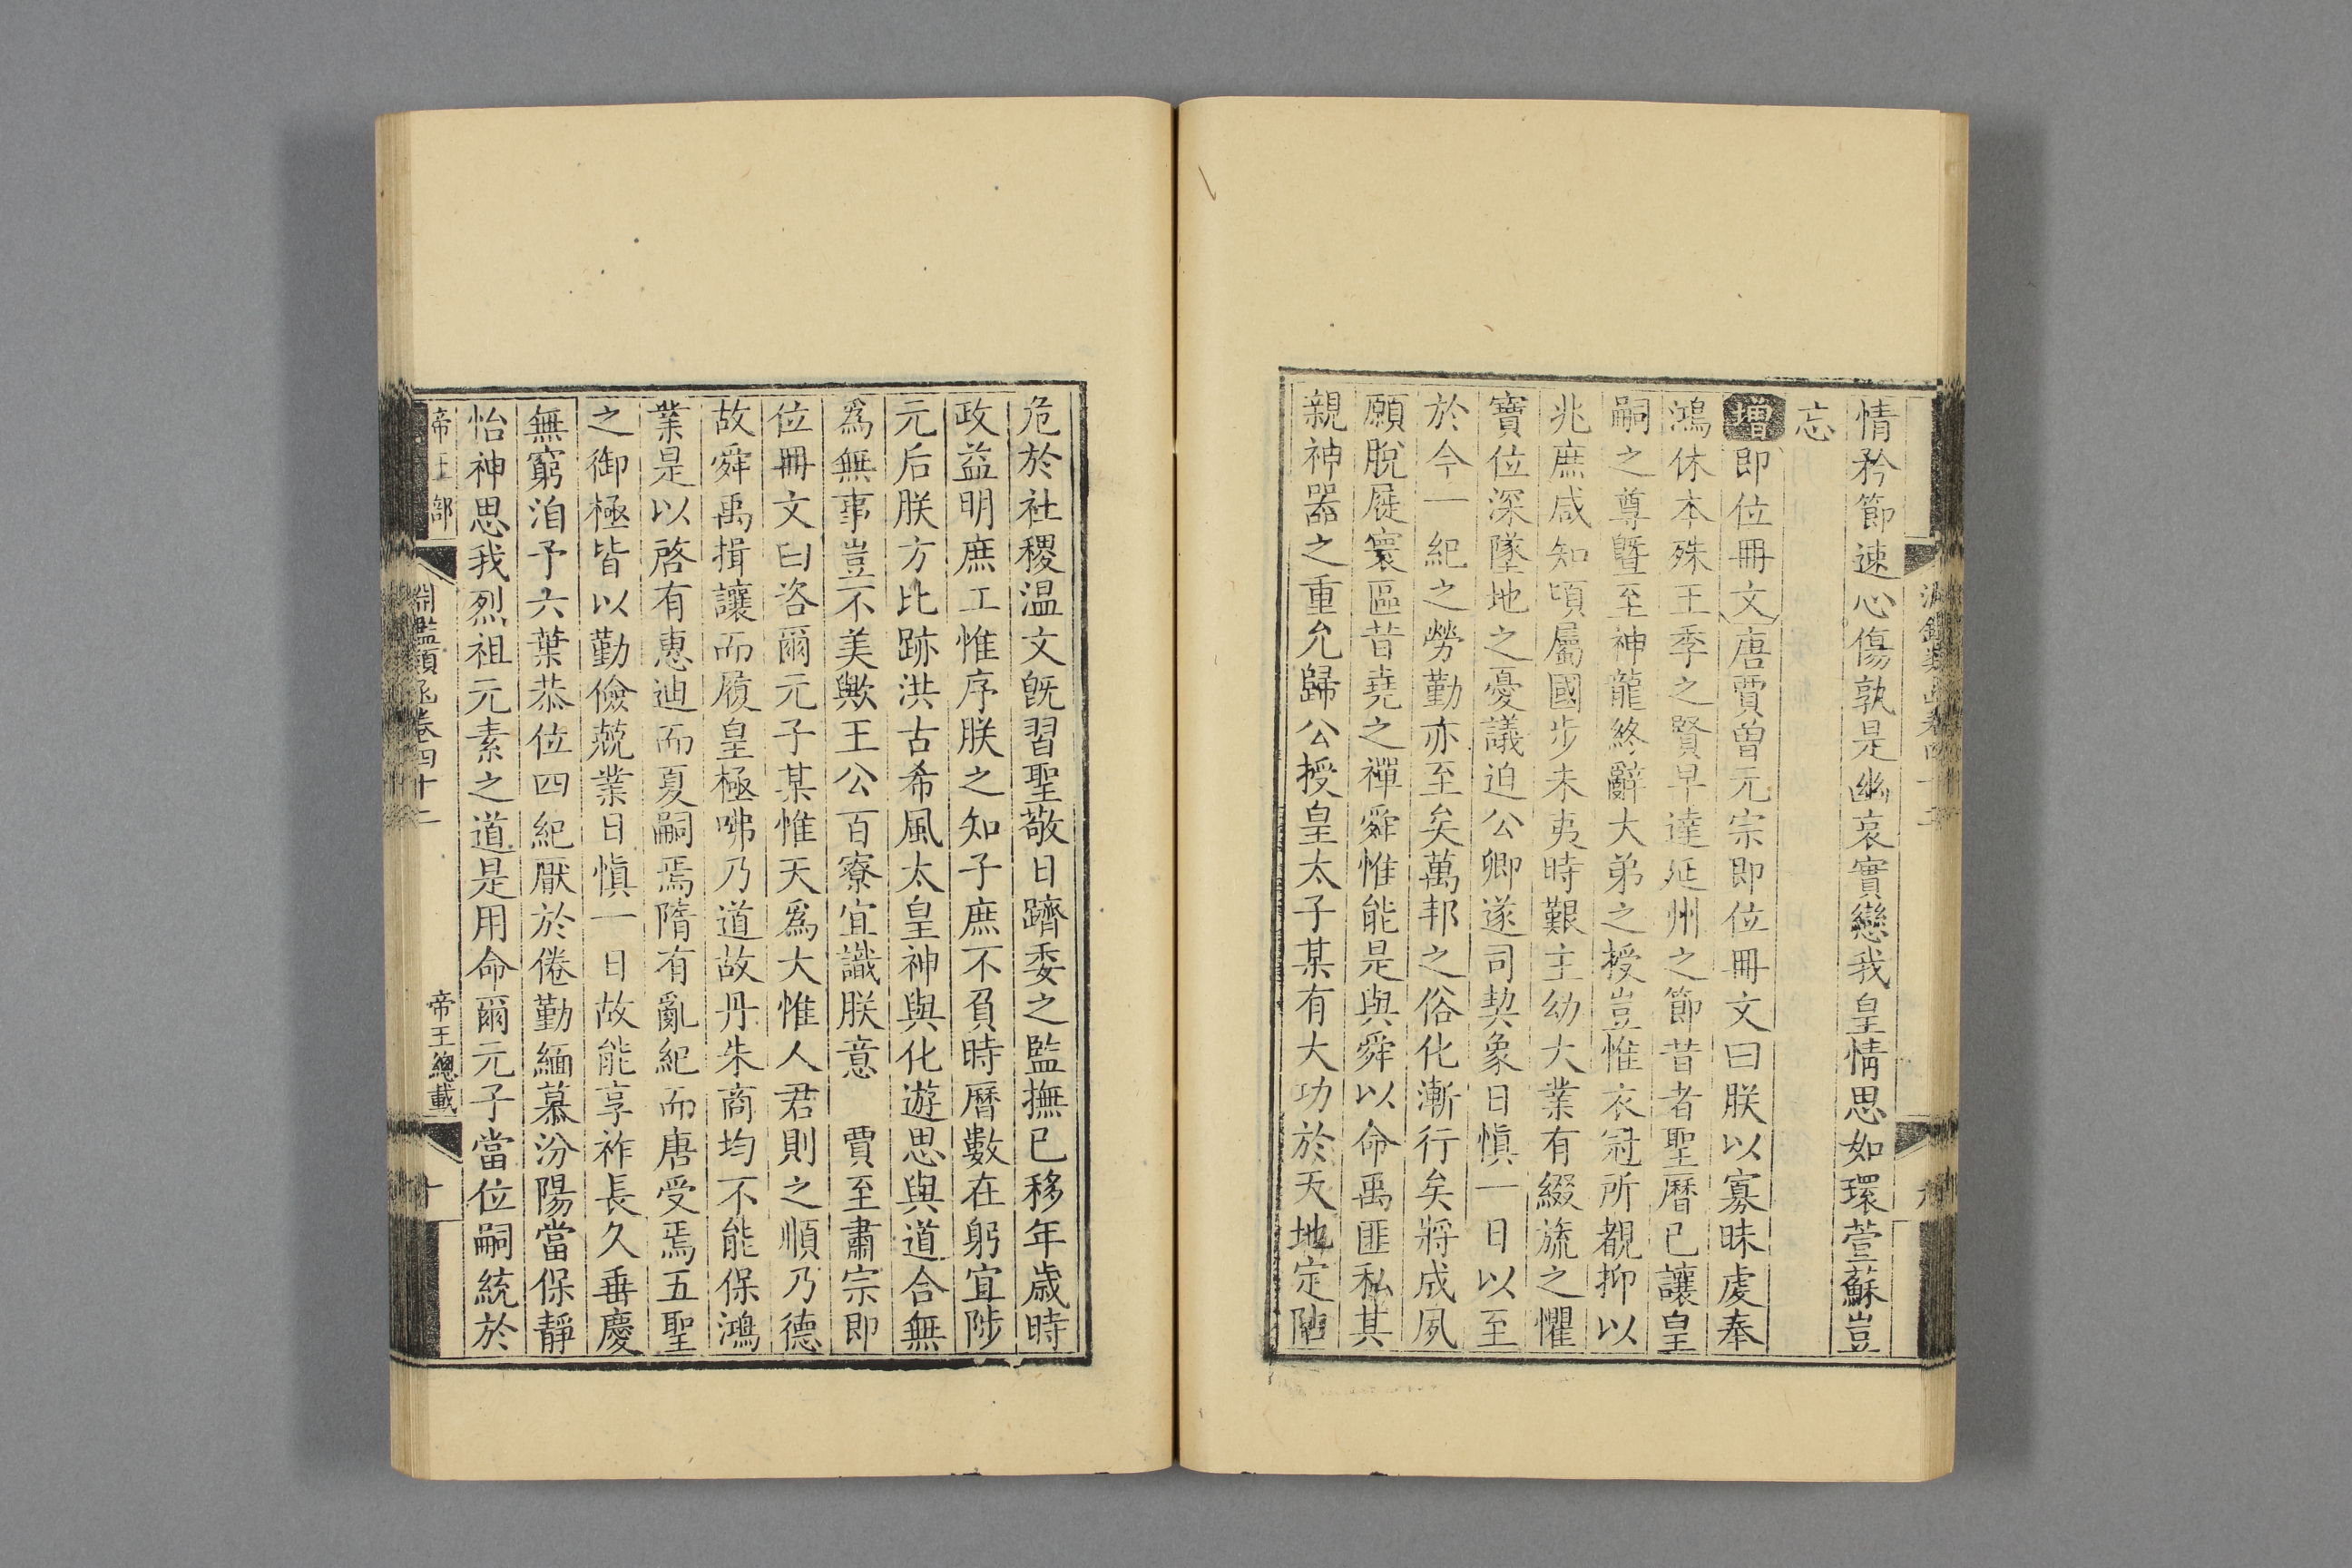 情矜節速心傷孰是幽哀實戀我皇情思如環萱蘇豈
忘
增即位冊文唐賈曾元宗即位冊文曰朕以寡昧虔奉
鴻休本殊王季之賢早達延州之節昔者聖曆已讓皇
嗣之尊曁至神龍終辭大弟之授豈惟衣冠所覩抑以
兆庶咸知頃屬國步未夷時艱主幼大業有綴旒之懼
寶位深墜地之憂議迫公卿遂司契象日愼一日以至
於今一紀之勞勤亦至矣萬邦之俗化漸行矣將成夙
願脫屣寰區昔堯之禪舜惟能是與舜以命禹匪私其
親神器之重允歸公授皇太子某有大功於天地定阽
危於社稷温文旣習聖敬日躋委之監撫已移年歲時
政益明庶工惟序朕之知子庶不負時曆數在躬宜陟
元后朕方比跡洪古希風太皇神與化遊思與道合無
爲無事豈不美歟王公百寮宜識朕意　賈至肅宗即
位冊文曰咨爾元子某惟天爲大惟人君則之順乃德
故舜禹揖讓而履皇極咈乃道故丹朱商均不能保鴻
業是以啓有惠迪而夏嗣焉隋有亂紀而唐受焉五聖
之御極皆以勤儉兢業日愼一日故能享祚長久垂慶
無窮洎予六葉恭位四紀厭於倦勤緬慕汾陽當保靜
怡神思我烈祖元素之道是用命爾元子當位嗣統於
帝王部
淵鑑類函卷四十二
帝王總載
十